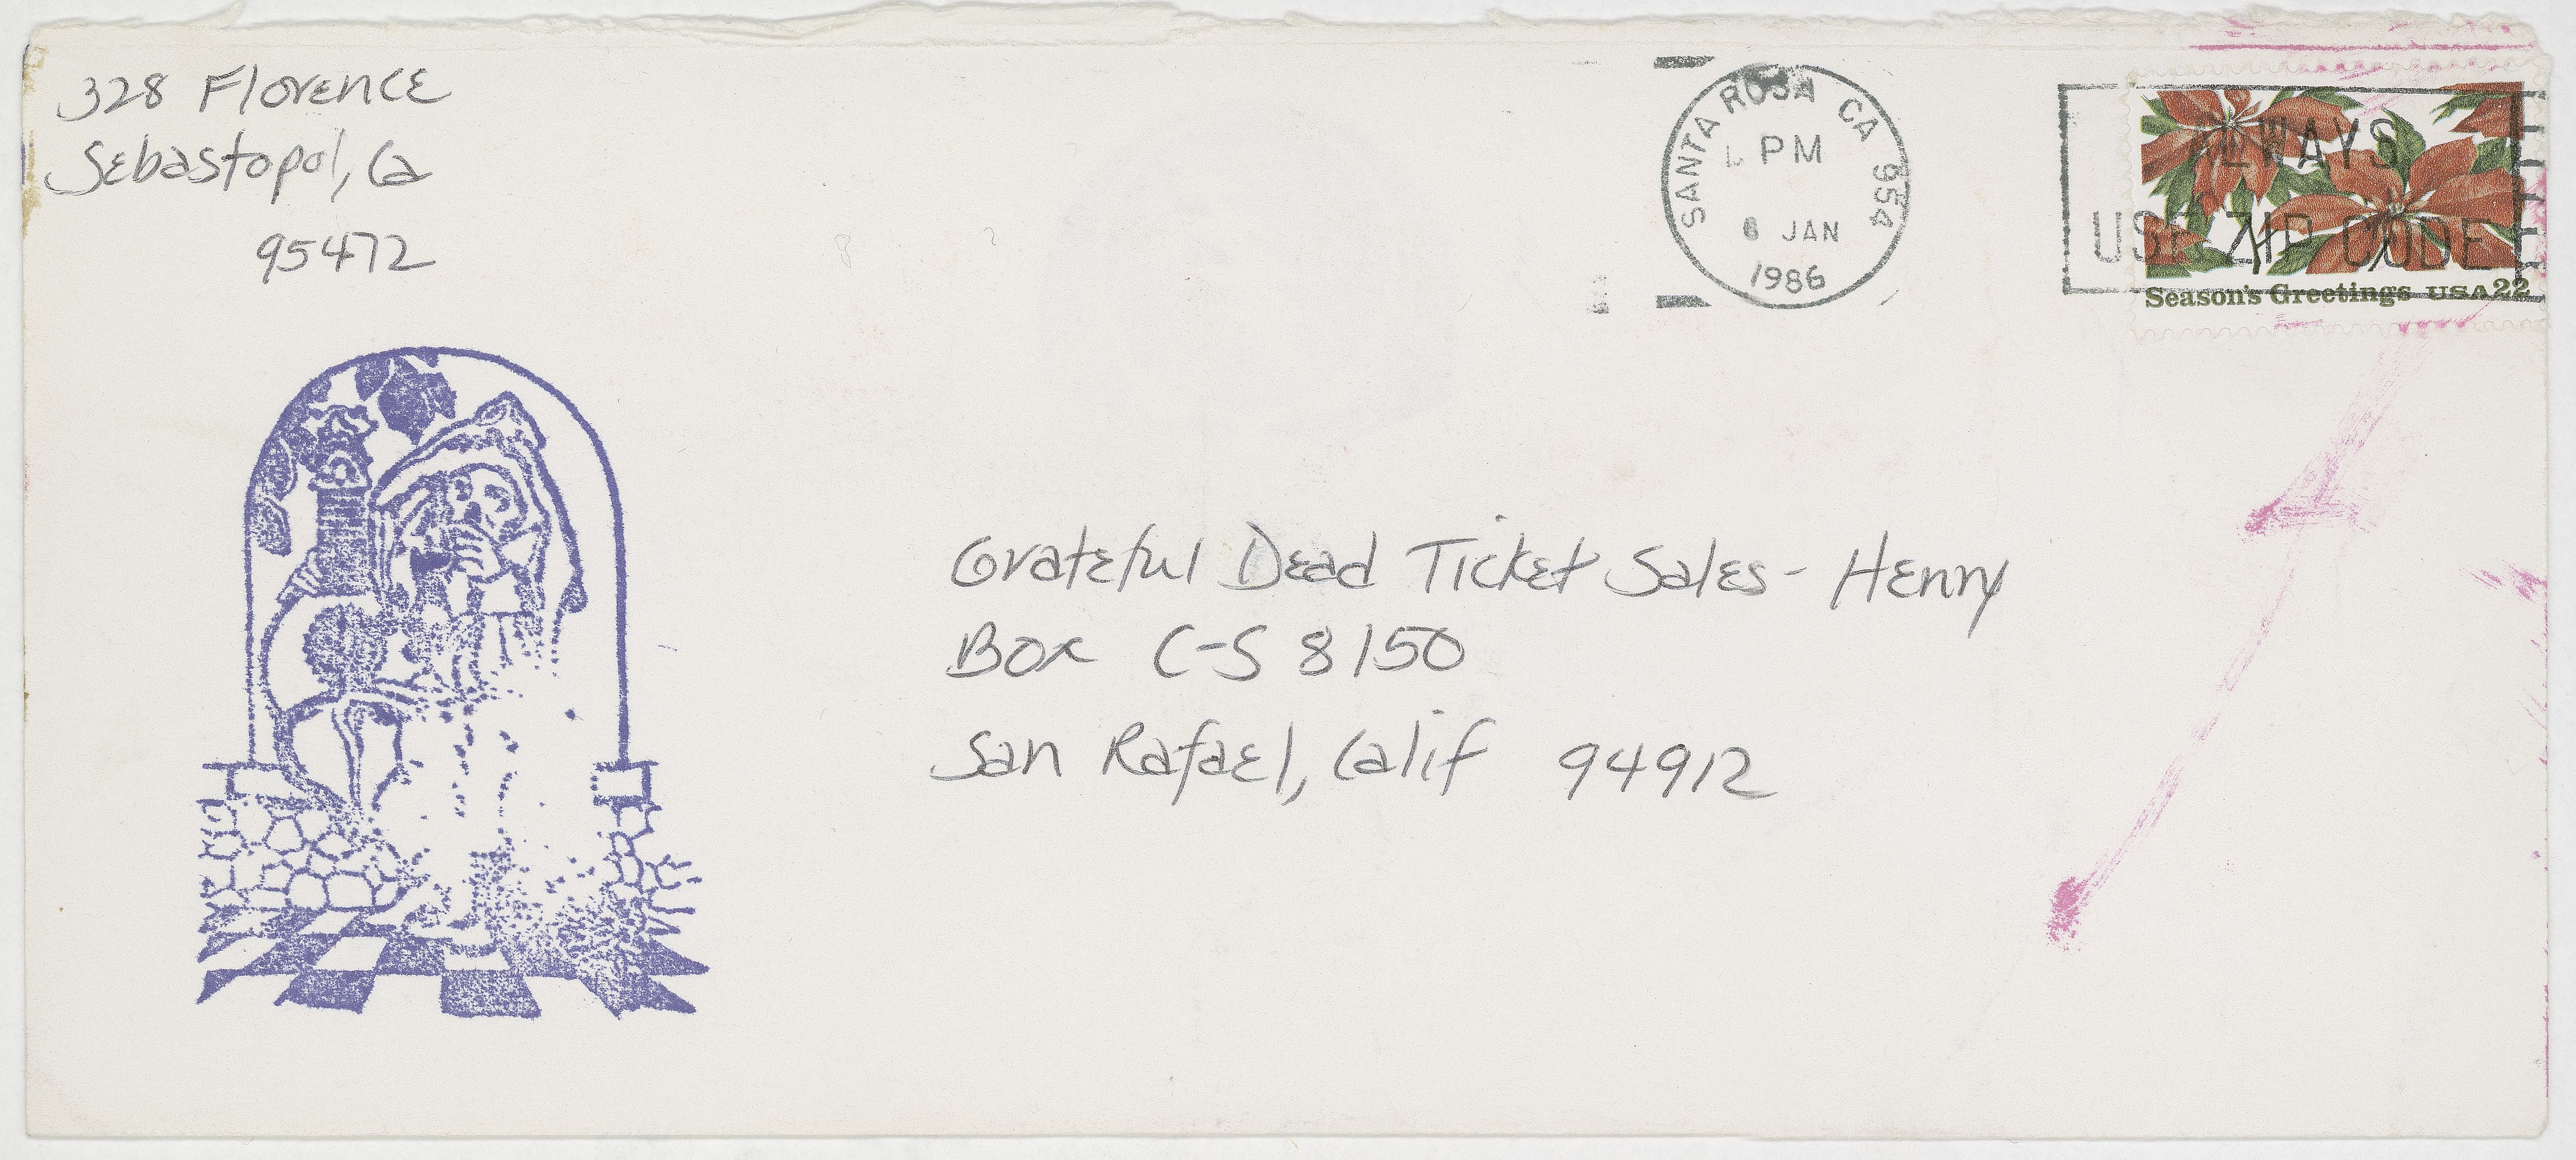 328 Florence
Sebastopol, Ca
95472
SANTA ROSA CA 954
PM
6 JAN
1986
ALWAYS
USE ZIP CODE
Season's Greetings USA 22
Grateful Dead Ticket Sales - Henry
Box C-S 8150
San Rafael, Calif 94912